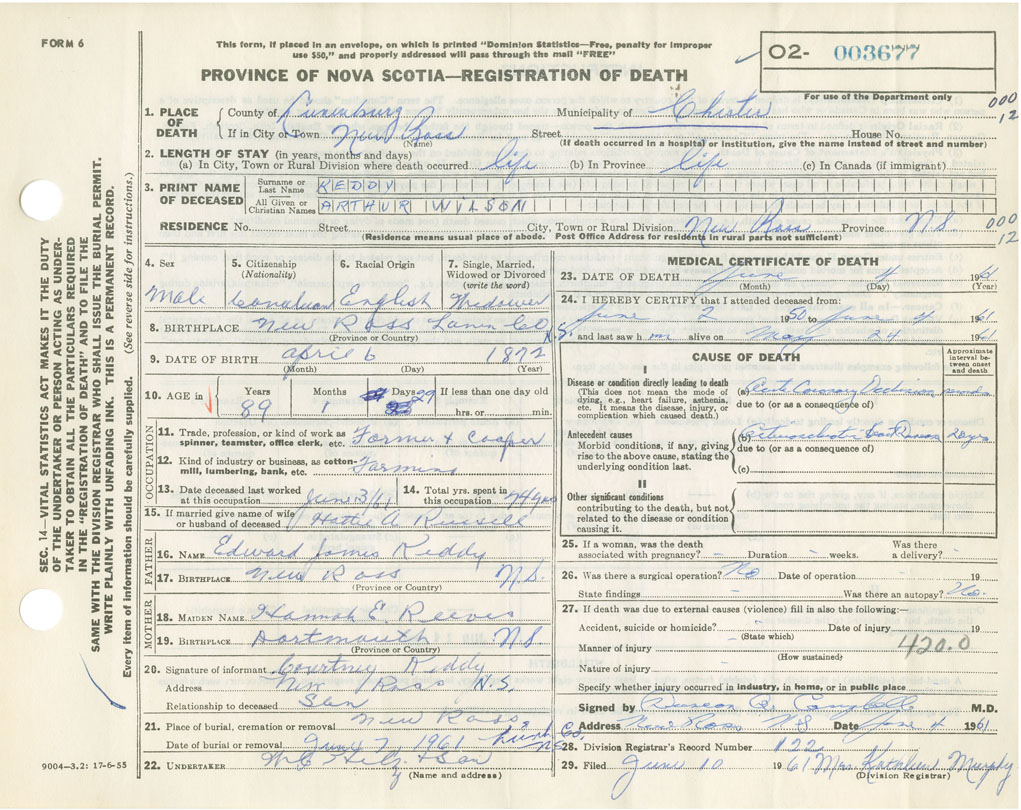 FORM 6
This form, if placed in an envelope, on which is printed "Dominion Statistics—Free, penalty for improper
use $50," and properly addressed will pass through the mail "FREE"
02- 003677
PROVINCE OF NOVA SCOTIA—REGISTRATION OF DEATH
For use of the Department only
000
12
1. PLACE OF DEATH
County of Lunenburg Municipality of Chester
If in City or Town New Ross Street House No.
(Name) (If death occurred in a hospital or institution, give the name instead of street and number)
2. LENGTH OF STAY (in years, months and days)
(a) In City, Town or Rural Division where death occurred life (b) In Province life (c) In Canada (if immigrant)
3. PRINT NAME OF DECEASED
Surname or Last Name KEDDY
All Given or Christian Names ARTHUR WILSON
RESIDENCE No. Street City, Town or Rural Division New Ross Province N.S.
000
12
(Residence means usual place of abode. Post Office Address for residents in rural parts not sufficient)
4. Sex
Male
5. Citizenship
(Nationality)
Canadian
6. Racial Origin
English
7. Single, Married,
Widowed or Divorced
(write the word)
Widower
8. BIRTHPLACE New Ross Lunen Co N.S.
(Province or Country)
9. DATE OF BIRTH April 6 1872
(Month) (Day) (Year)
10. AGE in
Years
89
Months
1
Days
29
If less than one day old
hrs. or min.
OCCUPATION
11. Trade, profession, or kind of work as
spinner, teamster, office clerk, etc. Farmer & Cooper
12. Kind of industry or business, as cotton-
mill, lumbering, bank, etc. Farming
13. Date deceased last worked
at this occupation June 3/61
14. Total yrs. spent in
this occupation 74 yrs
15. If married give name of wife
or husband of deceased Hattie A Russell
FATHER
16. NAME Edward James Keddy
17. BIRTHPLACE New Ross N.S.
(Province or Country)
MOTHER
18. MAIDEN NAME Hannah E. Reeves
19. BIRTHPLACE Dartmouth N S
(Province or Country)
20. Signature of informant Courtney Keddy
Address New Ross N.S.
Relationship to deceased Son
21. Place of burial, cremation or removal New Ross Lunen Co. N.S.
Date of burial or removal June 7 1961
22. UNDERTAKER & Son
(Name and address)
MEDICAL CERTIFICATE OF DEATH
23. DATE OF DEATH June 4 1961
(Month) (Day) (Year)
24. I HEREBY CERTIFY that I attended deceased from:
June 2 1950 to June 4 1961
and last saw h m alive on May 24 1961
CAUSE OF DEATH
Approximate
interval be-
tween onset
and death
I
Disease or condition directly leading to death
(This does not mean the mode of
dying, e.g., heart failure, asthenia,
etc. It means the disease, injury, or
complication which caused death.)
(a) Coronary
due to (or as a consequence of)
Antecedent causes
Morbid conditions, if any, giving
rise to the above cause, stating the
underlying condition last.
(b)
due to (or as a consequence of)
(c)
II
Other significant conditions
contributing to the death, but not
related to the disease or condition
causing it.
25. If a woman, was the death
associated with pregnancy? - Duration - weeks.
Was there
a delivery? -
26. Was there a surgical operation? No Date of operation - 19
State findings - Was there an autopsy? No.
27. If death was due to external causes (violence) fill in also the following:—
Accident, suicide or homicide? - Date of injury 19
(State which)
Manner of injury 420.0
(How sustained)
Nature of injury -
Specify whether injury occurred in industry, in home, or in public place
Signed by Duncan R. Campbell M.D.
Address New Ross N S Date June 4 1961
28. Division Registrar's Record Number 122
29. Filed June 10 1961 Mrs. Kathleen Murphy
(Division Registrar)
9004—3.2: 17-6-55
SEC. 14—VITAL STATISTICS ACT MAKES IT THE DUTY
OF THE UNDERTAKER OR PERSON ACTING AS UNDER-
TAKER TO OBTAIN ALL THE PARTICULARS REQUIRED
IN THE "REGISTRATION OF DEATH" AND TO FILE THE
SAME WITH THE DIVISION REGISTRAR WHO SHALL ISSUE THE BURIAL PERMIT.
WRITE PLAINLY WITH UNFADING INK. THIS IS A PERMANENT RECORD.
Every item of information should be carefully supplied. (See reverse side for instructions.)